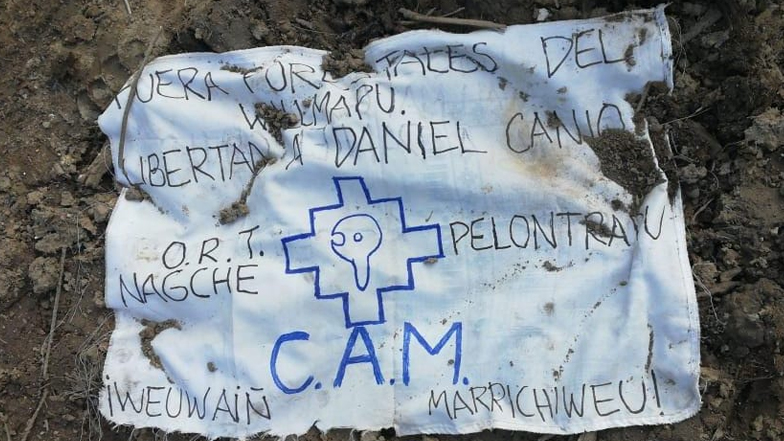 FUERA FORESTALES DEL
WALLMAPU.
LIBERTAD A DANIEL CANIO
O.R.T.
NAGCHE
PELONTRARU
C.A.M.
¡WEUWAIÑ
MARRICHIWEU!